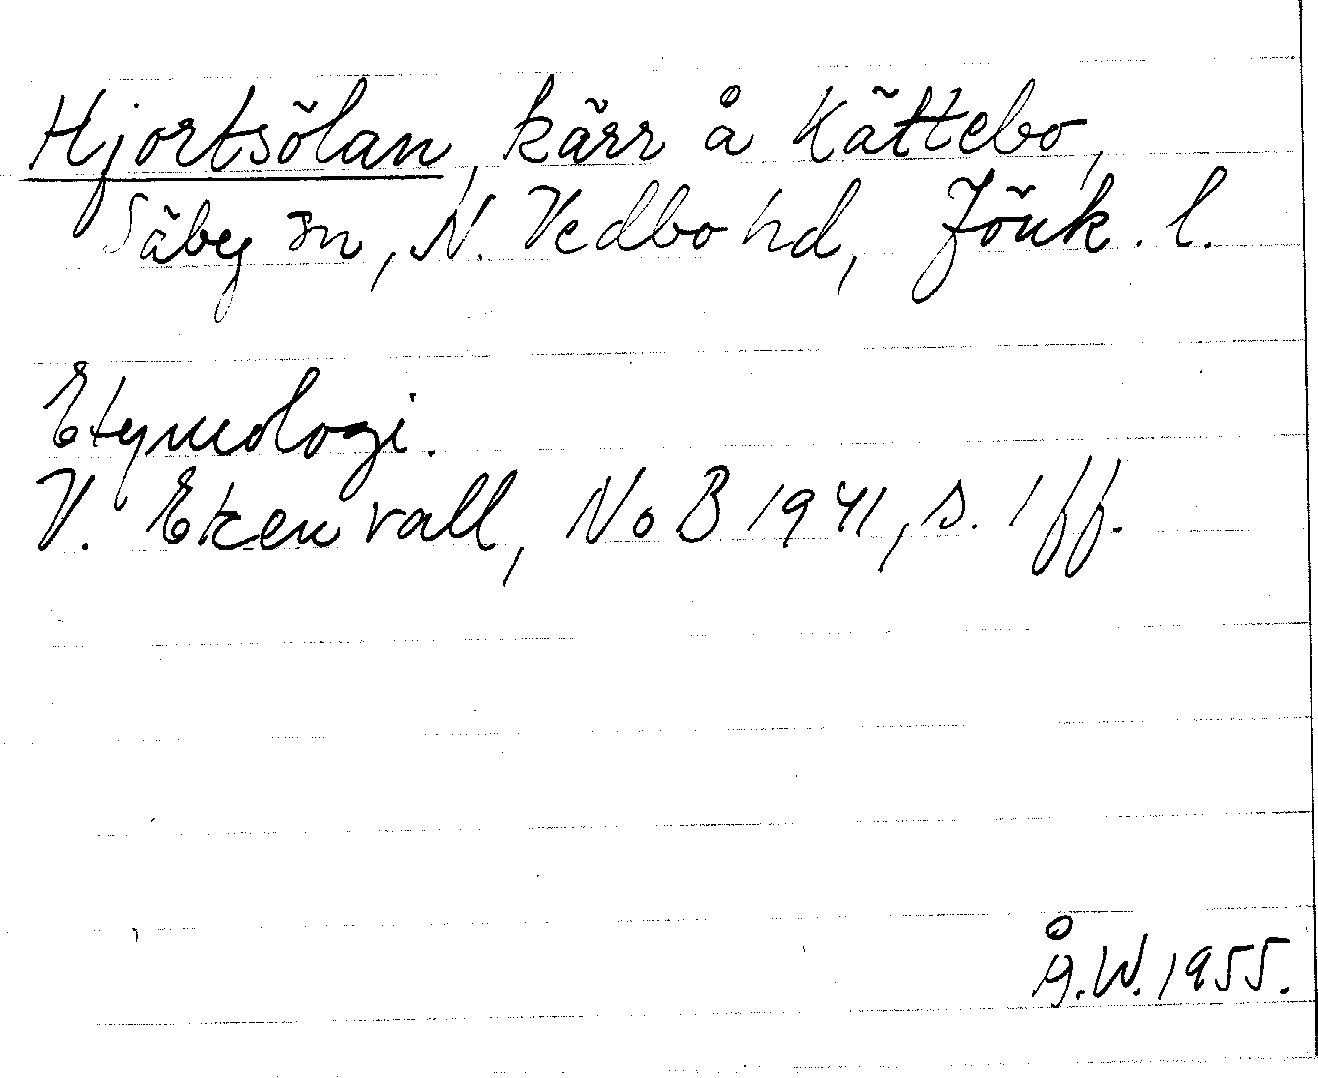 Hjortsölan, kärr å Kättebo,
Säby sn, N. Vedbo hd, Jönk. l.
Etymologi.
V. Ekenvall, NoB 1941, s. 1 ff.
Å.W. 1955.